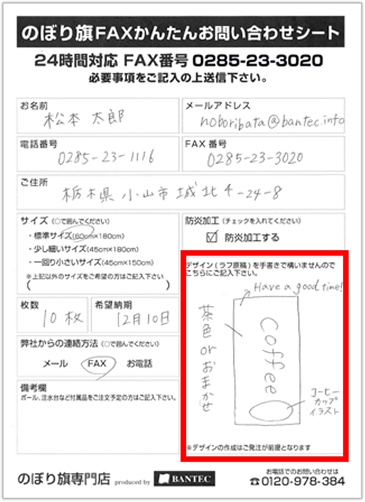 のぼり旗FAXかんたんお問い合わせシート
24時間対応 FAX番号 0285-23-3020
必要事項をご記入の上送信下さい。
お名前
松本 太郎
メールアドレス
noboribata@bantec.info
電話番号
0285-23-1116
FAX番号
0285-23-3020
ご住所
栃木県小山市城北4-24-8
サイズ (○で囲んでください)
・標準サイズ(60cm×180cm)
・少し細いサイズ(45cm×180cm)
・一回り小さいサイズ(45cm×150cm)
※上記以外のサイズをご希望の方はご記入下さい
( )
防炎加工 (チェックを入れてください)
☑ 防炎加工する
デザイン(ラフ原稿)を手書きで構いませんので
こちらにご記入下さい。
Have a good time!
茶色orおまかせ
Coffee
コーヒー
カップ
イラスト
※デザインの作成はご発注が前提となります
枚数
10枚
希望納期
12月10日
弊社からの連絡方法 (○で囲んでください)
メール FAX お電話
備考欄
ポール、注水台など付属品をご注文予定の方はご記入下さい。
のぼり旗専門店 produced by BANTEC
お電話でのお問い合わせは
0120-978-384